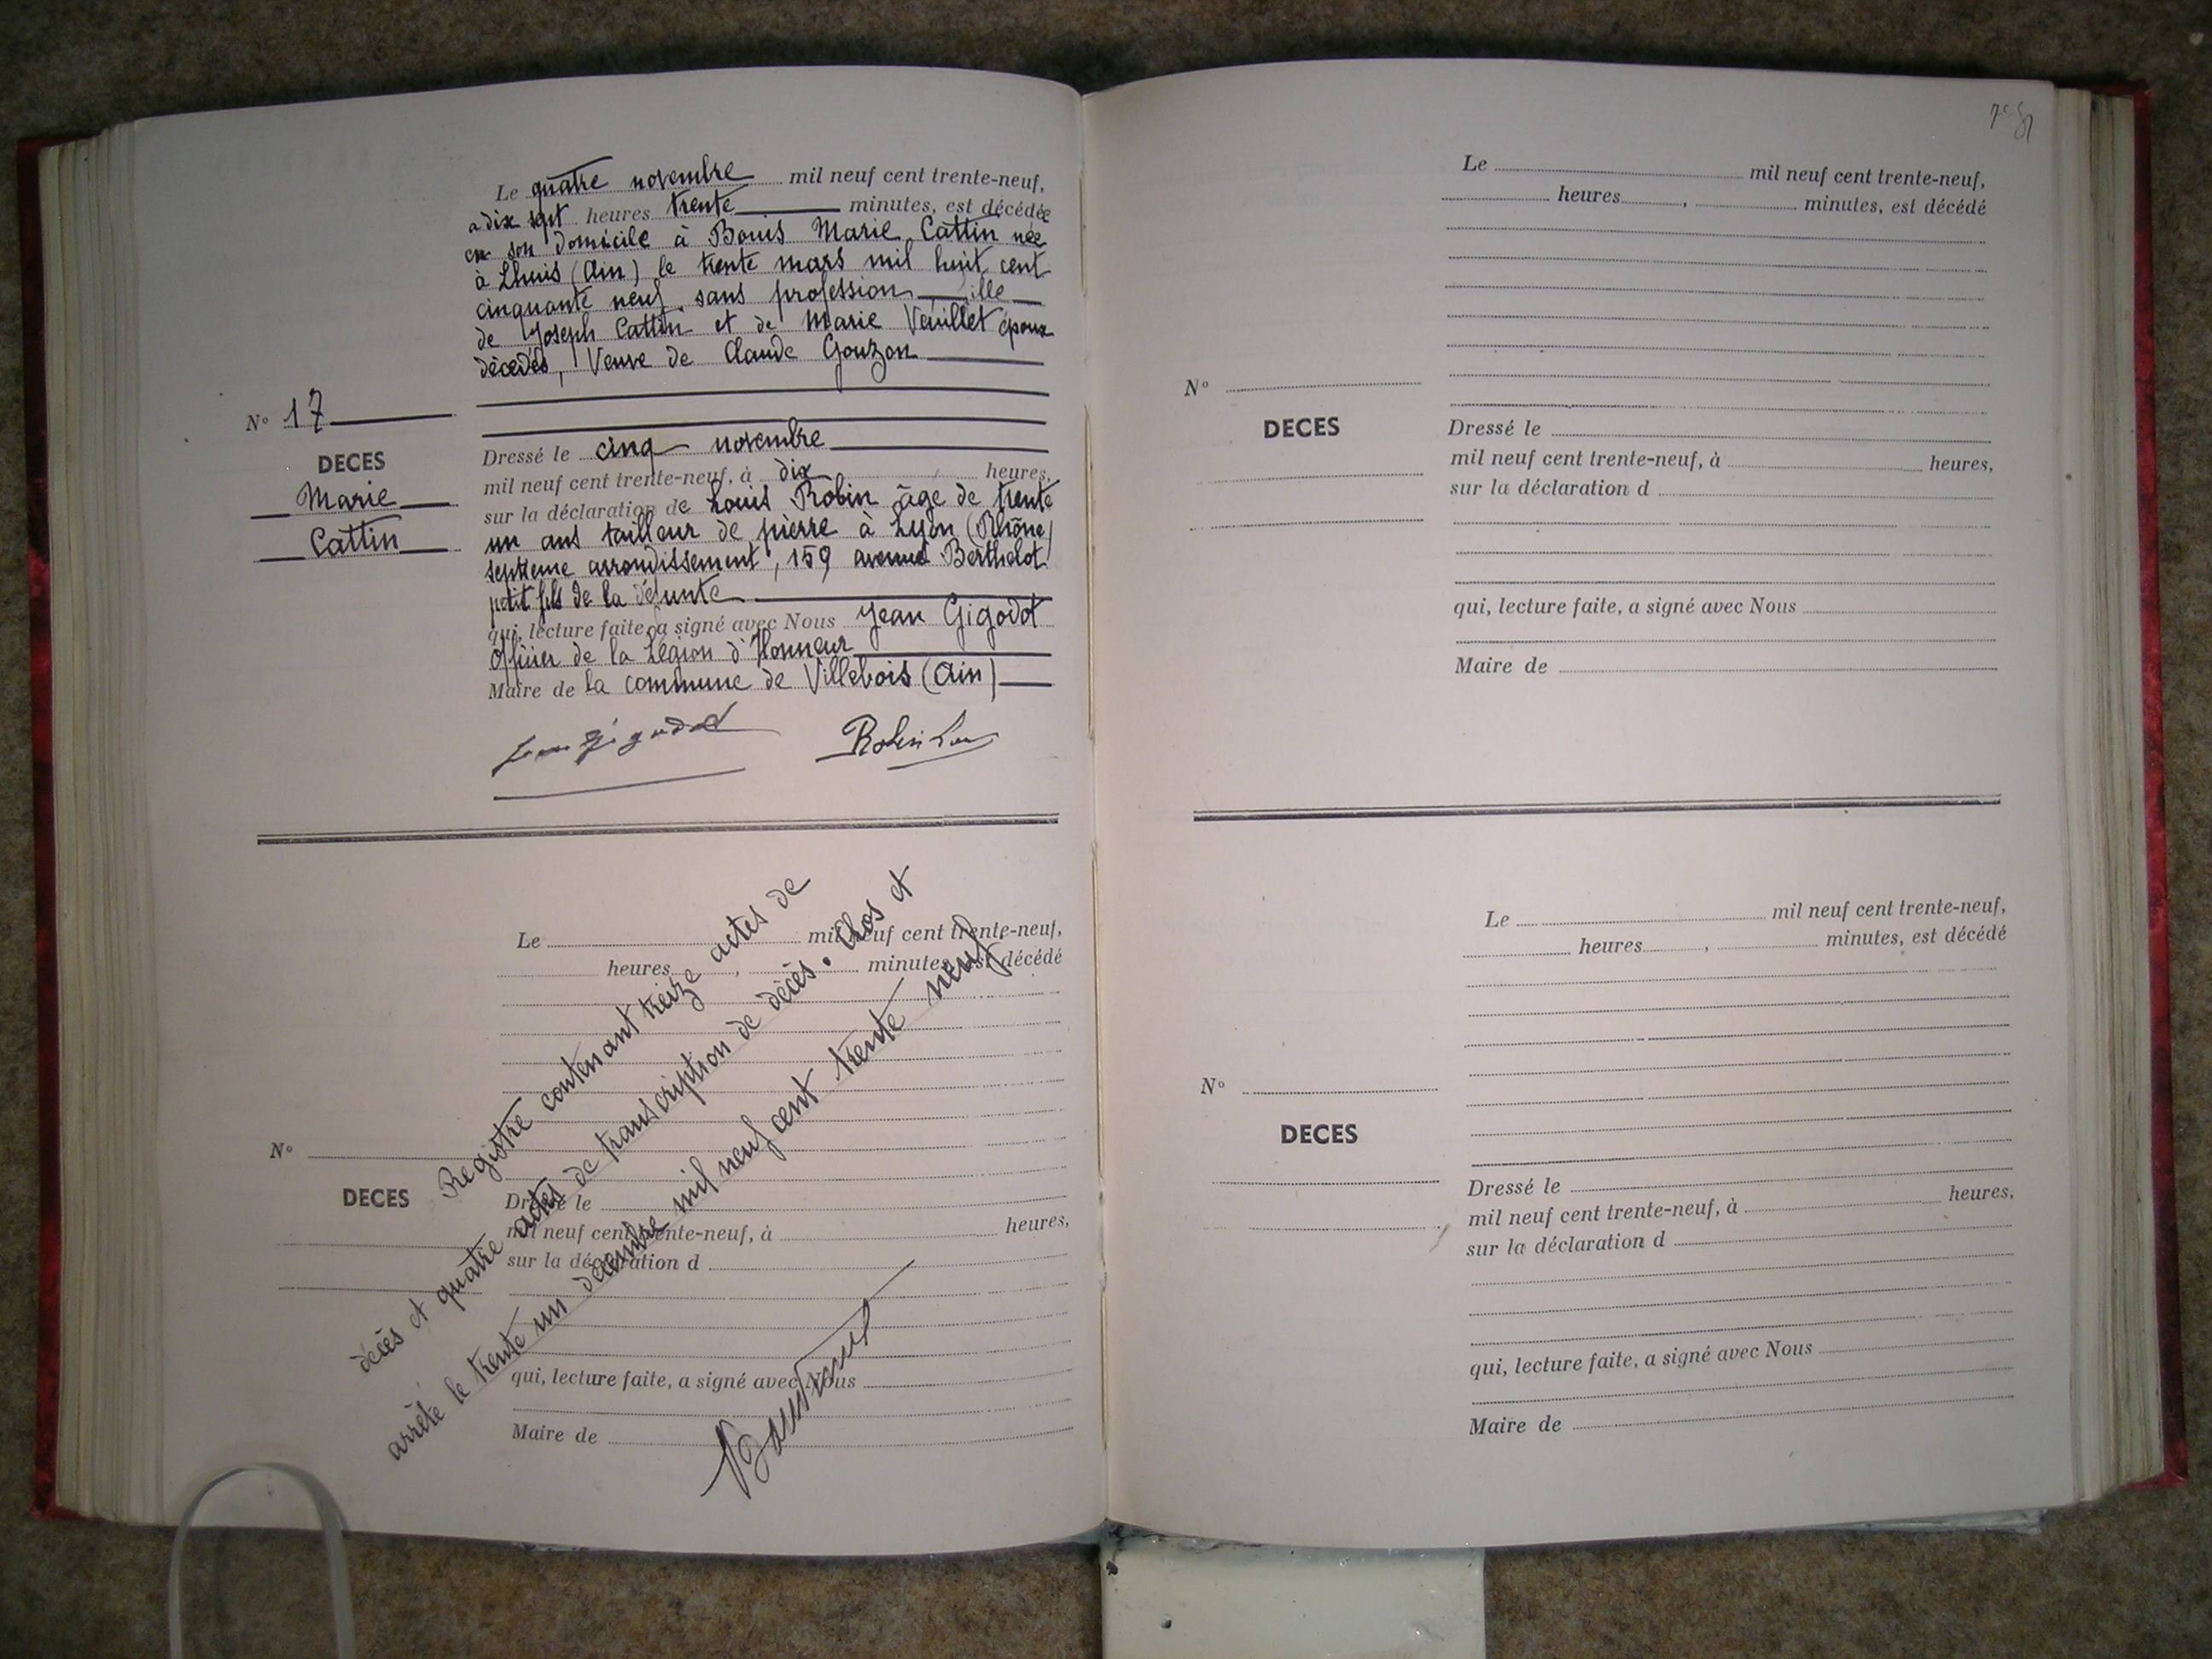 Le quatre novembre mil neuf cent trente-neuf,
à dix sept heures trente minutes, est décédée
en son domicile à Bouis Marie Cattin née
à Lhuis (Ain) le trente mars mil huit cent
cinquante neuf sans profession fille
de Joseph Cattin et de Marie Veuillet époux
décédés, Veuve de Claude Gouzon
N° 17
DECES
Marie
Cattin
Dressé le cinq novembre
mil neuf cent trente-neuf, à dix heures,
sur la déclaration de Louis Robin âgé de trente
un ans tailleur de pierre à Lyon (Rhône)
septième arrondissement, 159 avenue Berthelot
petit fils de la défunte
qui, lecture faite, a signé avec Nous Jean Gigodot
Officier de la Légion d'Honneur
Maire de la commune de Villebois (Ain)
Jean Gigodot
Robin Lou
Le mil neuf cent trente-neuf,
heures, minutes, est décédé
N°
DECES
Dressé le
mil neuf cent trente-neuf, à heures,
sur la déclaration d
qui, lecture faite, a signé avec Nous
Maire de
Registre contenant treize actes de
décès et quatre actes de transcription de décès. Clos et
arrêté le trente un décembre mil neuf cent trente neuf
Le mil neuf cent trente-neuf,
heures, minutes, est décédé
N°
DECES
Dressé le
mil neuf cent trente-neuf, à heures,
sur la déclaration d
qui, lecture faite, a signé avec Nous
Maire de
Le mil neuf cent trente-neuf,
heures, minutes, est décédé
N°
DECES
Dressé le
mil neuf cent trente-neuf, à heures,
sur la déclaration d
qui, lecture faite, a signé avec Nous
Maire de